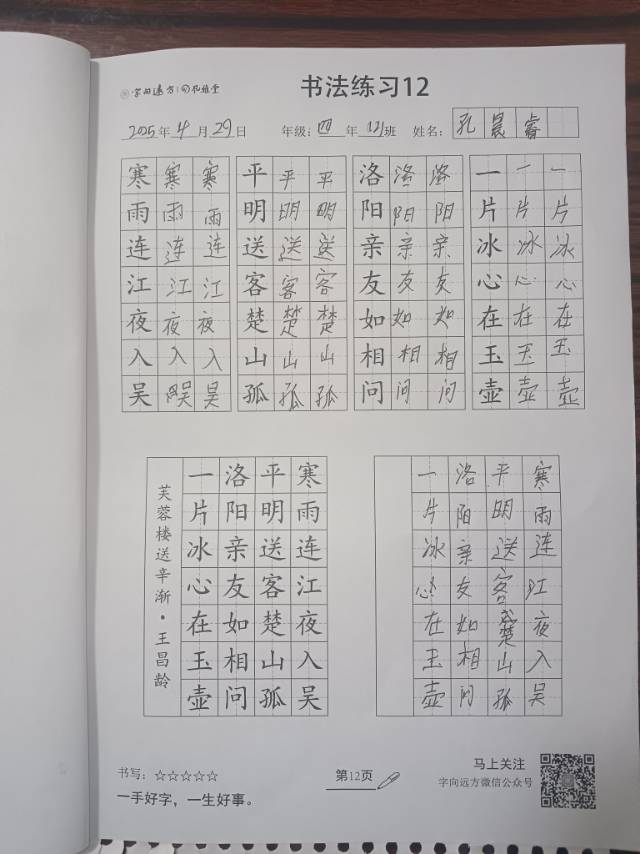 字向远方|孔雀堂
书法练习12
2025年4月29日 年级:四年12班 姓名:孔晨睿
寒寒寒 平平平 洛洛洛 一一一
雨雨雨 明明明 阳阳阳 片片片
连连连 送送送 亲亲亲 冰冰冰
江江江 客客客 友友友 心心心
夜夜夜 楚楚楚 如如如 在在在
入入入 山山山 相相相 玉玉玉
吴吴吴 孤孤孤 问问问 壶壶壶
芙蓉楼送辛渐·王昌龄
寒雨连江夜入吴
平明送客楚山孤
洛阳亲友如相问
一片冰心在玉壶
寒雨连江夜入吴
平明送客楚山孤
洛阳亲友如相问
一片冰心在王壶
书写:☆☆☆☆☆
一手好字,一生好事。
第12页
马上关注
字向远方微信公众号